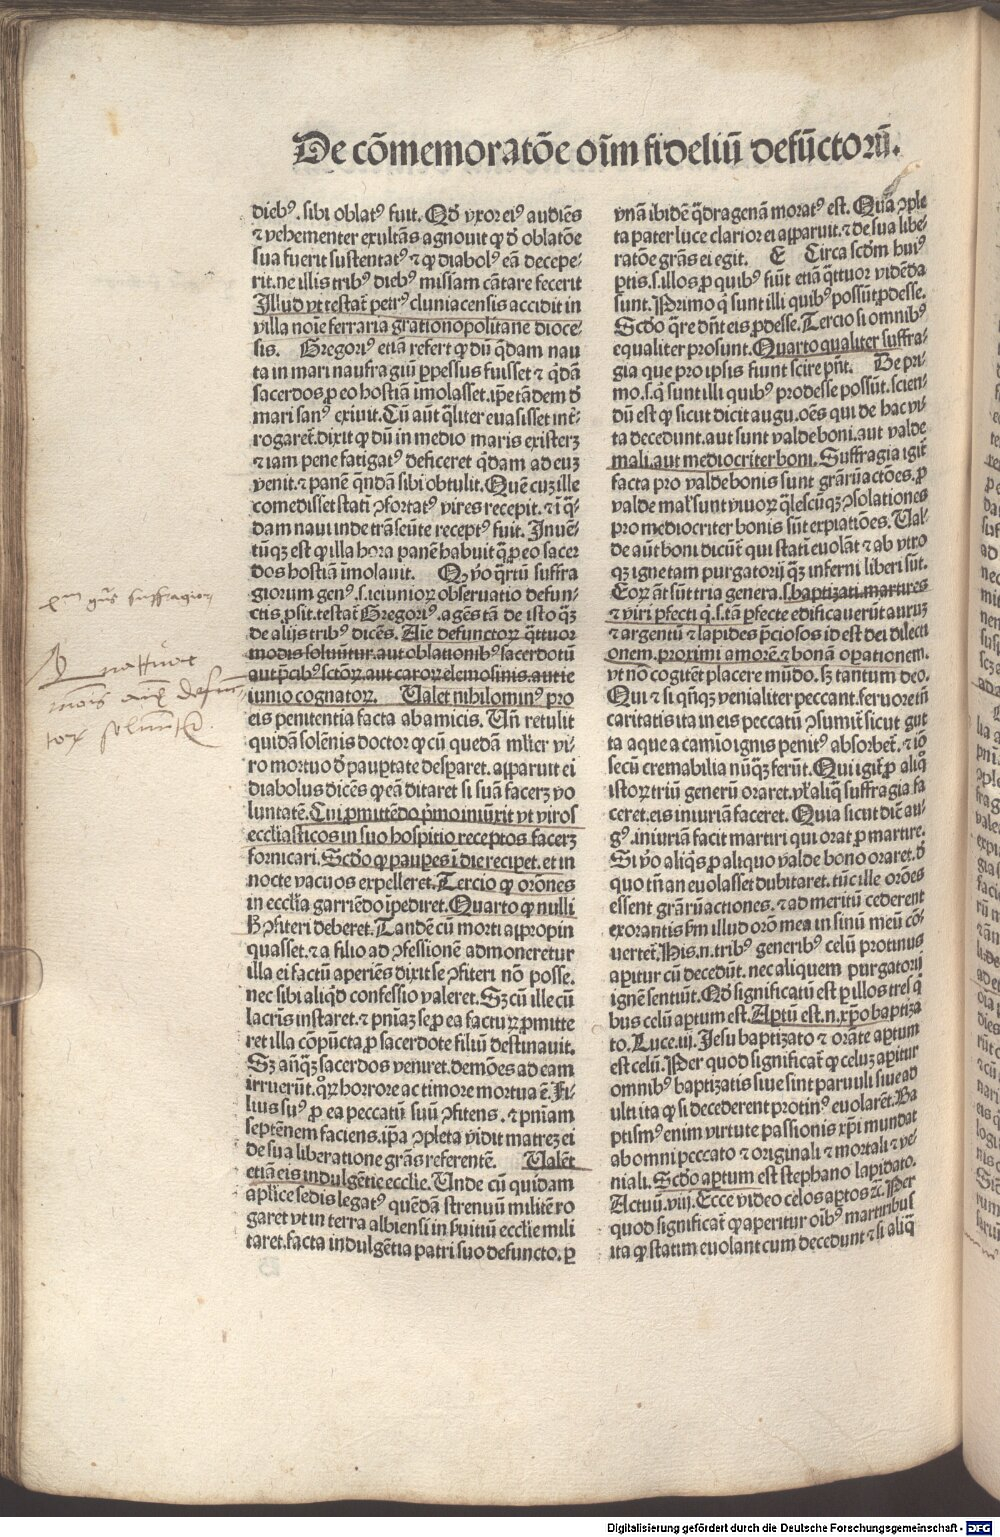 De cōmemoratōe oīm fideliū defūctorū.
diebꝰ. sibi oblatꝰ fuit. Qđ vxor eiꝰ audiēs
⁊ vehementer exultās agnouit ꝙ đ oblatōe
sua fuerit sustentatꝰ ⁊ ꝙ diabolꝰ eā decepe-
rit. ne illis tribꝰ diebꝰ missam cātare fecerit
Illud vt testat̄ petrꝰ cluniacensis accidit in
villa noīe ferraria grationopolitane dioce-
sis. Gregoriꝰ etiā refert ꝙ dū q̄dam nau
ta in mari naufragiū ꝑpessus fuisset ⁊ q̄dā
sacerdos ꝓ eo hostiā īmolasset. ip̄e tādem đ
mari sanꝰ exiuit. Cū aūt q̄liter euasisset int̄-
rogaret̄. dixit ꝙ dū in medio maris existerꝫ
⁊ iam pene fatigatꝰ deficeret q̄dam ad euꝫ
venit. ⁊ panē q̄ndā sibi obtulit. Quē cuꝫ ille
comedisset statī ꝯfortatꝰ vires recepit. ⁊ ī q̄-
dam naui inde trāseūte receptꝰ fuit. Inuē-
tūqꝫ est ꝙ illa hora panē habuit q̄ ꝓ eo sacer
dos hostiā īmolauit. Qꝫ ṽo q̄rtū suffra
giorum genꝰ. s. ieiunioꝝ obseruatio defun-
ctis ꝓsit. testat̄ Gregoriꝰ. agēs tā de isto qꝫ̄
de alijs tribꝰ dicēs. Aīe defunctoꝝ q̄ttuor
modis soluūtur. aut oblationibꝰ sacerdotū
aut p̄cibꝰ sctōꝝ. aut caroꝝ elemosinis. aut ie
iunio cognatoꝝ. Ualet nihilominꝰ pro
eis penitentia facta ab amicis. Uñ retulit
quidā solēnis doctor ꝙ cū quedam mĺier vi-
ro mortuo đ pauꝑtate desꝑaret. apparuit ei
diabolus dicēs ꝙ eā ditaret si suā facerꝫ vo
luntatē. Cui ꝓmittēdo p̄mo iniūxit vt viros
ecclīasticos in suo hospitio receptos facerꝫ
fornicari. Scđo ꝙ pauꝑes ī die reciꝑet. et in
nocte vacuos expelleret. Tercio ꝙ orōnes
in ecclīa garriēdo īpediret. Quarto ꝙ nulli
ꝯfiteri deberet. Tandē cū morti appropin
quasset. ⁊ a filio ad ꝯfessionē admoneretur
illa ei factū aperiēs dixit se ꝯfiteri nō posse.
nec sibi aliq̄d confessio valeret. Sꝫ cū ille cū
lacrīs instaret. ⁊ pn̄iaꝫ se ꝓ ea factuꝝ ꝓmitte
ret illa cōpūcta ꝓ sacerdote filiū destinauit.
Sꝫ añq̄ꝫ sacerdos veniret. demōes ad eam
irruerūt. qͦꝝ horrore ac timore mortua ē. Fi-
lius suꝰ ꝓ ea peccatū suū ꝯfitens. ⁊ pn̄iam
septēnem faciens. ip̄a ꝯpleta vidit matreꝫ ei
de sua liberatione grās referentē. Ualēt
etiā eis indulgētie ecclie. Unde cū quidam
aplīce sedis legatꝰ quēdā strenuū militē ro
garet vt in terra albiensi in ẜuitiū ecclie mili
taret. facta indulgētia patri suo defuncto. ꝑ
vnā ibidē q̄dragenā moratꝰ est. Quā ꝯple
ta pater luce clarior ei apparuit. ⁊ de sua libe-
ratōe grās ei egit. E Circa scđm huiꝰ
ꝑtis. s. illos ꝓ quibꝰ fiūt etiā q̄ttuor vidēda
sunt. Primo q̄ sunt illi quibꝰ possūt ꝓdesse.
Scđo q̄re dn̄t eis ꝓdesse. Tercio si omnibꝰ
equaliter prosunt. Quarto qualiter suffra-
gia que pro ipsis fiunt scire pn̄t. De pri-
mo. s. q̄ sunt illi quibꝰ prodesse possūt. scien-
dū est ꝙ sicut dicit augu. oēs qui de hac vi-
ta decedunt. aut sunt valde boni. aut valde
mali. aut mediocriter boni. Suffragia igit̄
facta pro valde bonis sunt grāꝝ actōes. ꝓ
valde maĺ sunt viuoꝝ q̄lescūqꝫ ꝯsolationes
pro mediocriter bonis sūt expiatiōes. Ual-
de aūt boni dicūt̄ qui statī euolāt ⁊ ab vtro
qꝫ igne tam purgatorij qꝫ̄ inferni liberi sūt.
Eoꝝ āt sūt tria genera. s. baptizati. martires
⁊ viri ꝑfecti q̄. s. tā ꝑfecte edificauerūt auruꝫ
⁊ argentū ⁊ lapides p̄ciosos id est dei dilecti
onem. proximi amorē. ⁊ bonā oꝑationem.
vt nō cogitēt placere mūdo. sꝫ tantum deo.
Qui ⁊ si qn̄qꝫ venialiter peccant. feruore tñ
caritatis ita in eis peccatū ꝯsumit̄ sicut gut
ta aque a camīo ignis penitꝰ absorbet̄. ⁊ iō
secū cremabilia nūqꝫ̄ ferūt. Qui igit̄ ꝓ aliqͦ
istoꝝ triū generū oraret. vĺ aliq̄ suffragia fa
ceret. eis iniuriā faceret. Quia sicut dic̄ au-
gꝰ. iniuriā facit martiri qui orat ꝓ martire.
Si ṽo aliq̄s ꝓ aliquo valde bono oraret. đ
quo tñ an euolasset dubitaret. tūc ille orōes
essent grāꝝ actiones. ⁊ ad meritū cederent
exorantis ẜm illud orō mea in sinū meū cō-
uertet̄. His. n. tribꝰ generibꝰ celū protinus
aꝑitur cū decedūt. nec aliquem purgatorij
ignē sentiūt. Qđ significatū est ꝑ illos tres q̄
bus celū aꝑtum est. Aꝑtū est. n. xp̄o baptiza
to. Luce. iij. Jesu baptizato ⁊ orāte aꝑtum
est celū. Per quod significat̄ ꝙ celuꝫ aꝑitur
omnibꝰ baptizatis siue sint paruuli siue ad
ulti ita ꝙ si decederent protinꝰ euolarēt. Ba
ptismꝰ enim virtute passionis xp̄i mundat
ab omni peccato ⁊ originali ⁊ mortali ⁊ ve-
niali. Scđo aꝑtum est stephano lapidato.
Actuū. viij. Ecce video celos aꝑtos ⁊c̄. Per
quod significat̄ ꝙ aperitur oībꝰ martiribus
ita ꝙ statim euolant cum decedunt ⁊ si aliq̄
suffragioꝝ
Digitalisierung gefördert durch die Deutsche Forschungsgemeinschaft - DFG